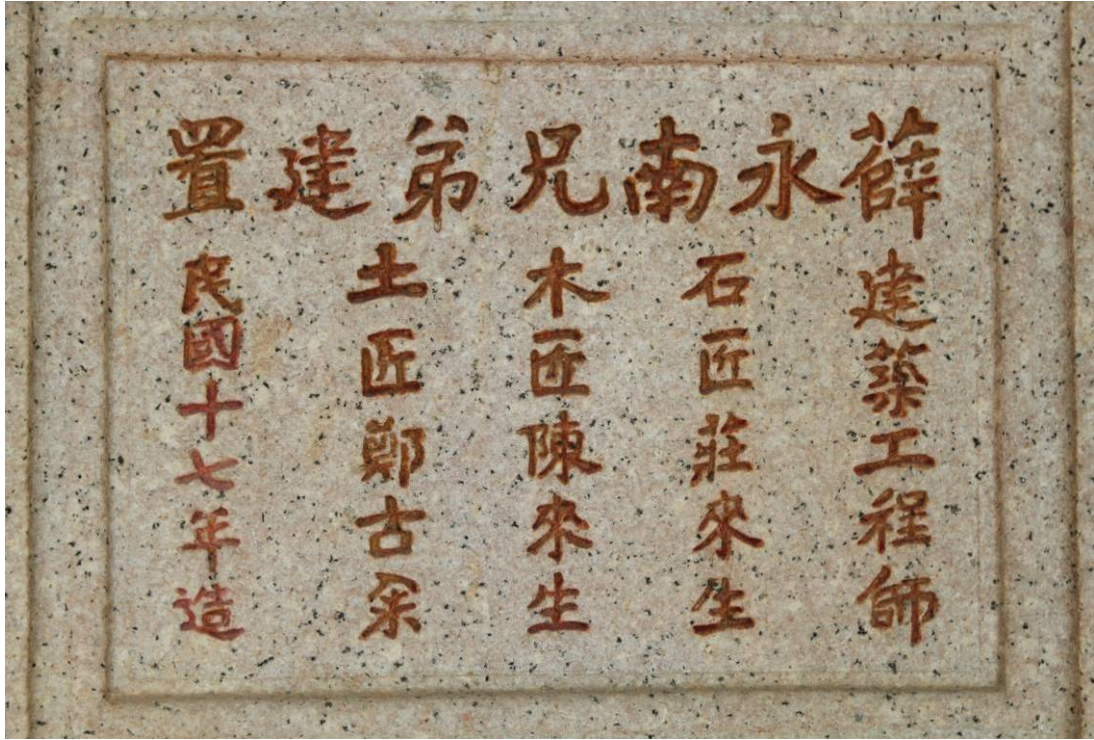 薛永南兄弟建置
建築工程師
石匠莊來生
木匠陳來生
土匠鄭古汆
民國十七年造